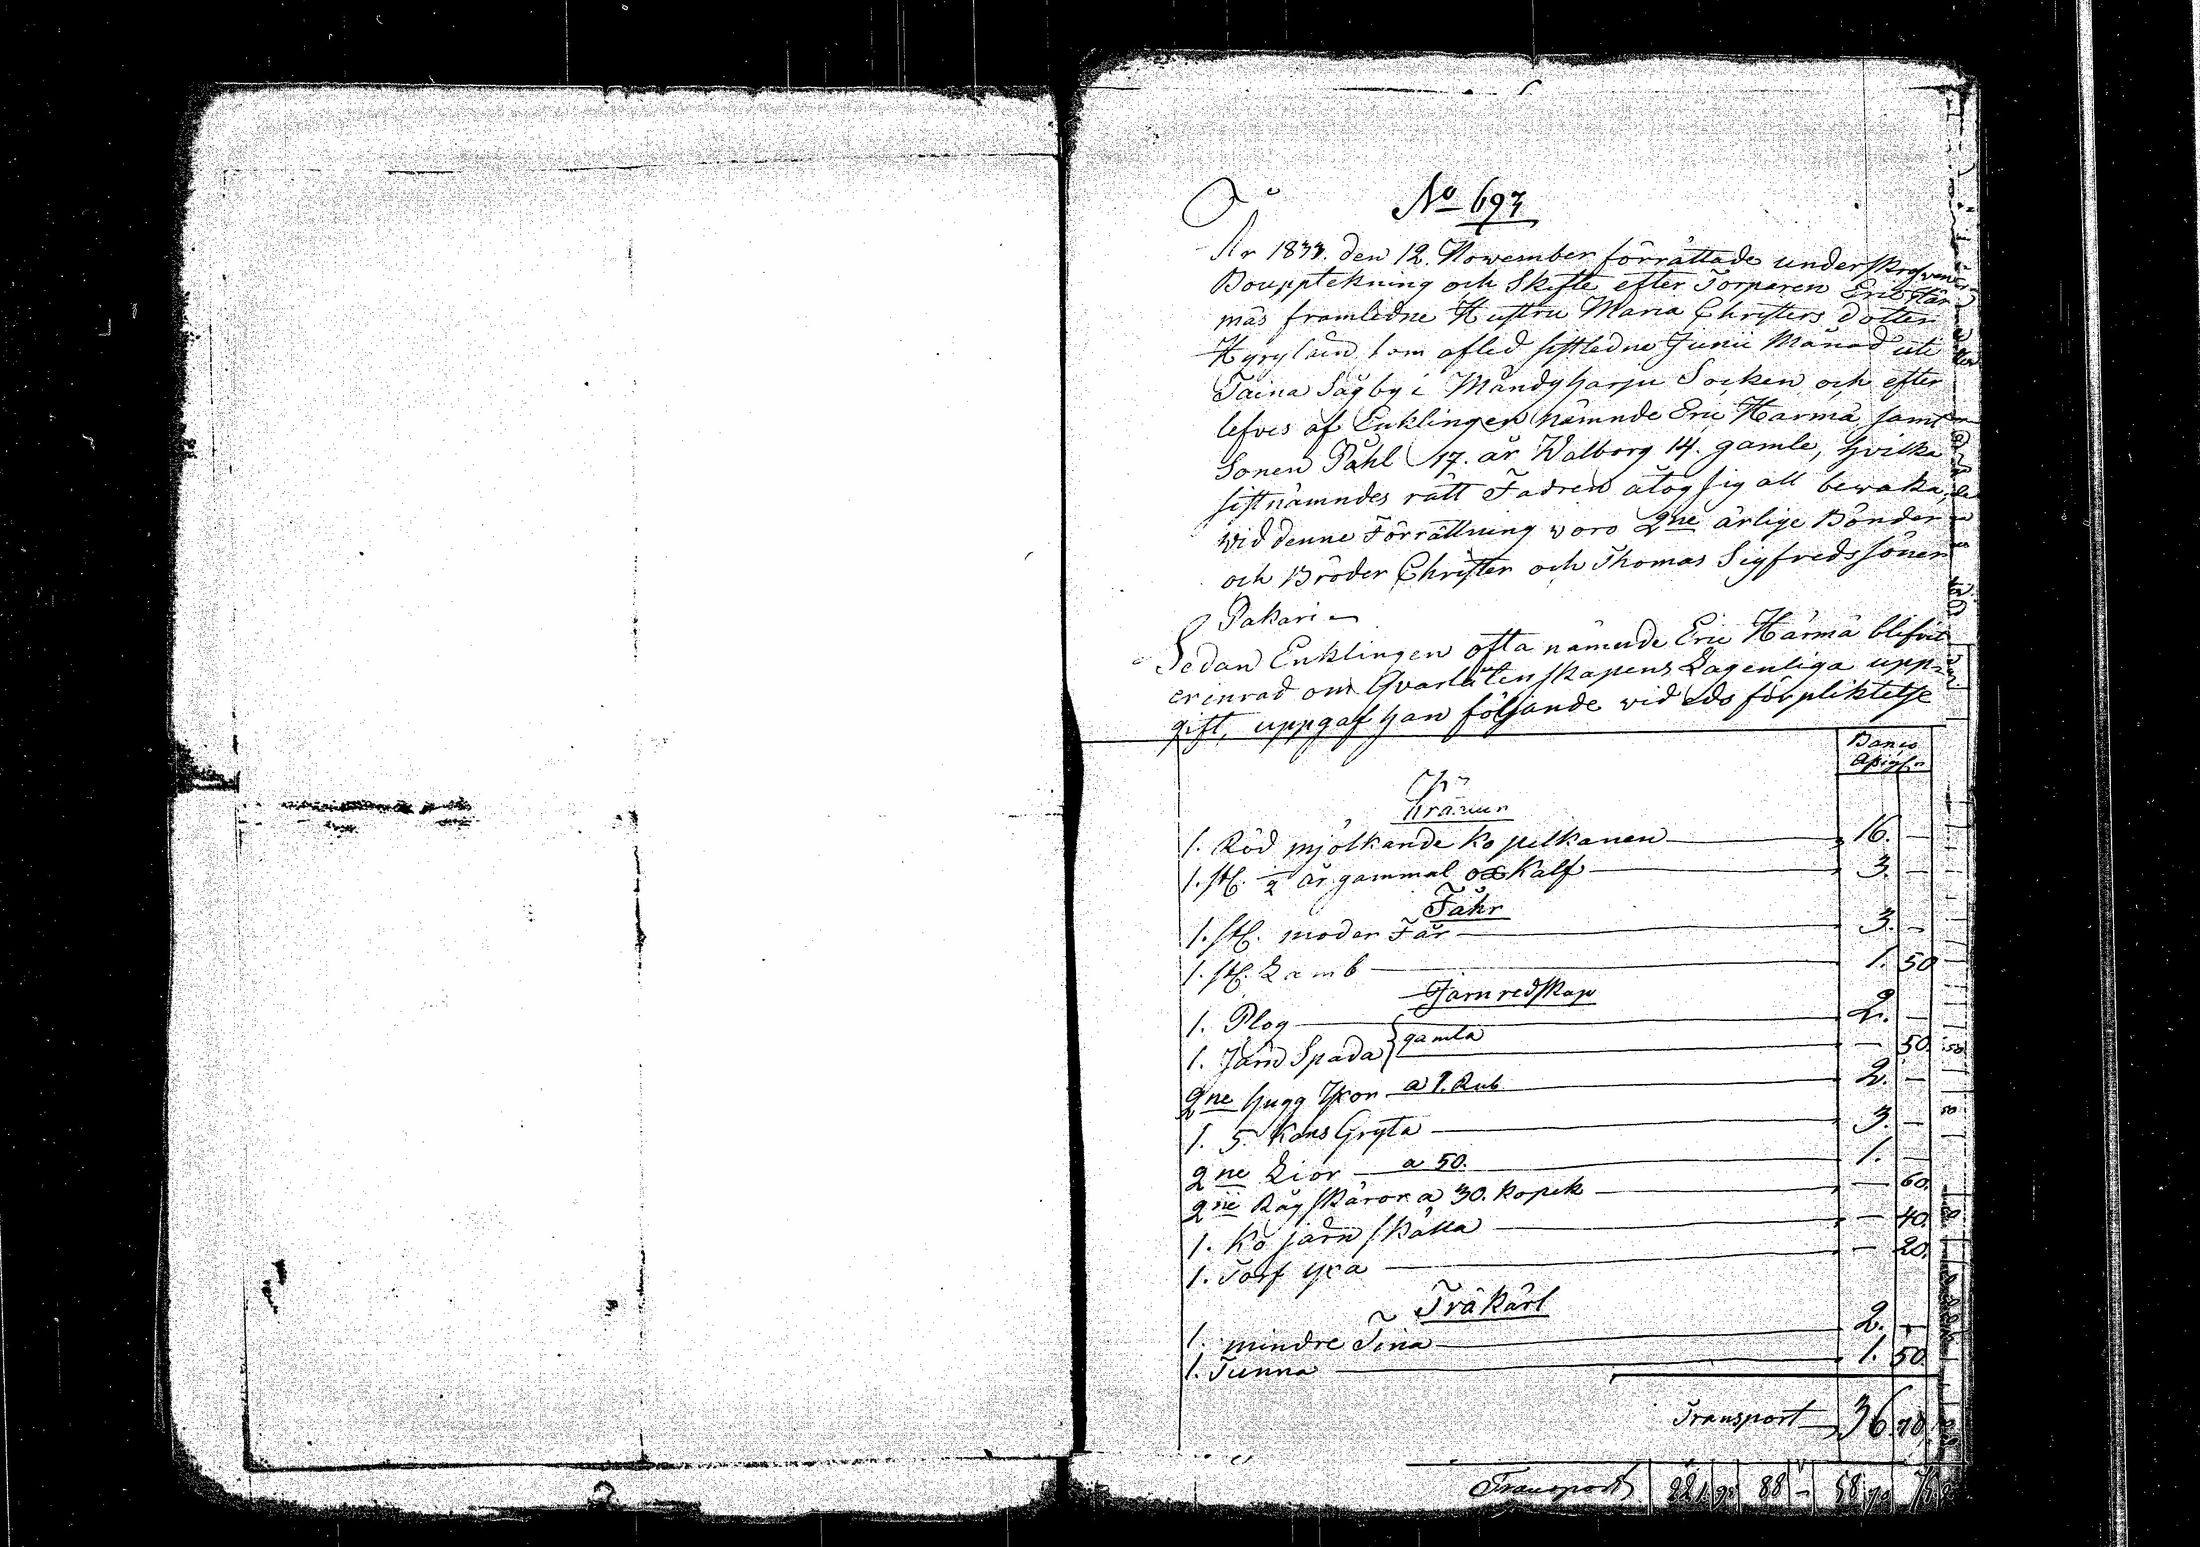 No 693
År 1833. den 12. November förrättade underskrefven
Boupptekning och Skifte efter Torparen Eric Här
mäs framledne Hustru Maria Christers dotter
som afled sistledne Junii Månad uti
Taina Såg by i Mändyharju Socken och efter
lefves af Enklingen nämnde Eric Härmä samt
Sonen Påhl 17. år Walborg 14. gamle, hvilka
sistnämndes rätt Fadren åtog sig att bewaka,
wid denne Förrättning woro 2ne ärlige Bönder
och Bröder Christer och Thomas Sigfreds söner
Pakari
Sedan Enklingen ofta nämnde Eric Härmä blifvit
erinrad om Qvarlåtenskapens Lagenliga upp=
gift, uppgaf han följande wid eds förpliktelse
Banco
Assign:
Kräatur
1. Röd mjölkande ko pelkanen 16. —
1. st. 2 år gammal ox Kalf 3. —
Fåhr
1. st. moder Får 3. —
1. st. Lamb 1. 50
Järnredskap
1. Plog 2. —
gamla
1. Järn Spada — 50.
2ne hugg Yxor a 1. Rub 2. —
1. 5. Kans Gryta 3. —
2ne Lior a 50. 1. —
2ne Råg skäror a 30. kopek — 60.
1. Ko järn skälla — 40.
1. Torf yxa — 20.
Träkärl
1. mindre Tina 2. —
1. Tunna 1. 50
Transport 36 70
Transport 221 90 88 — 58 70